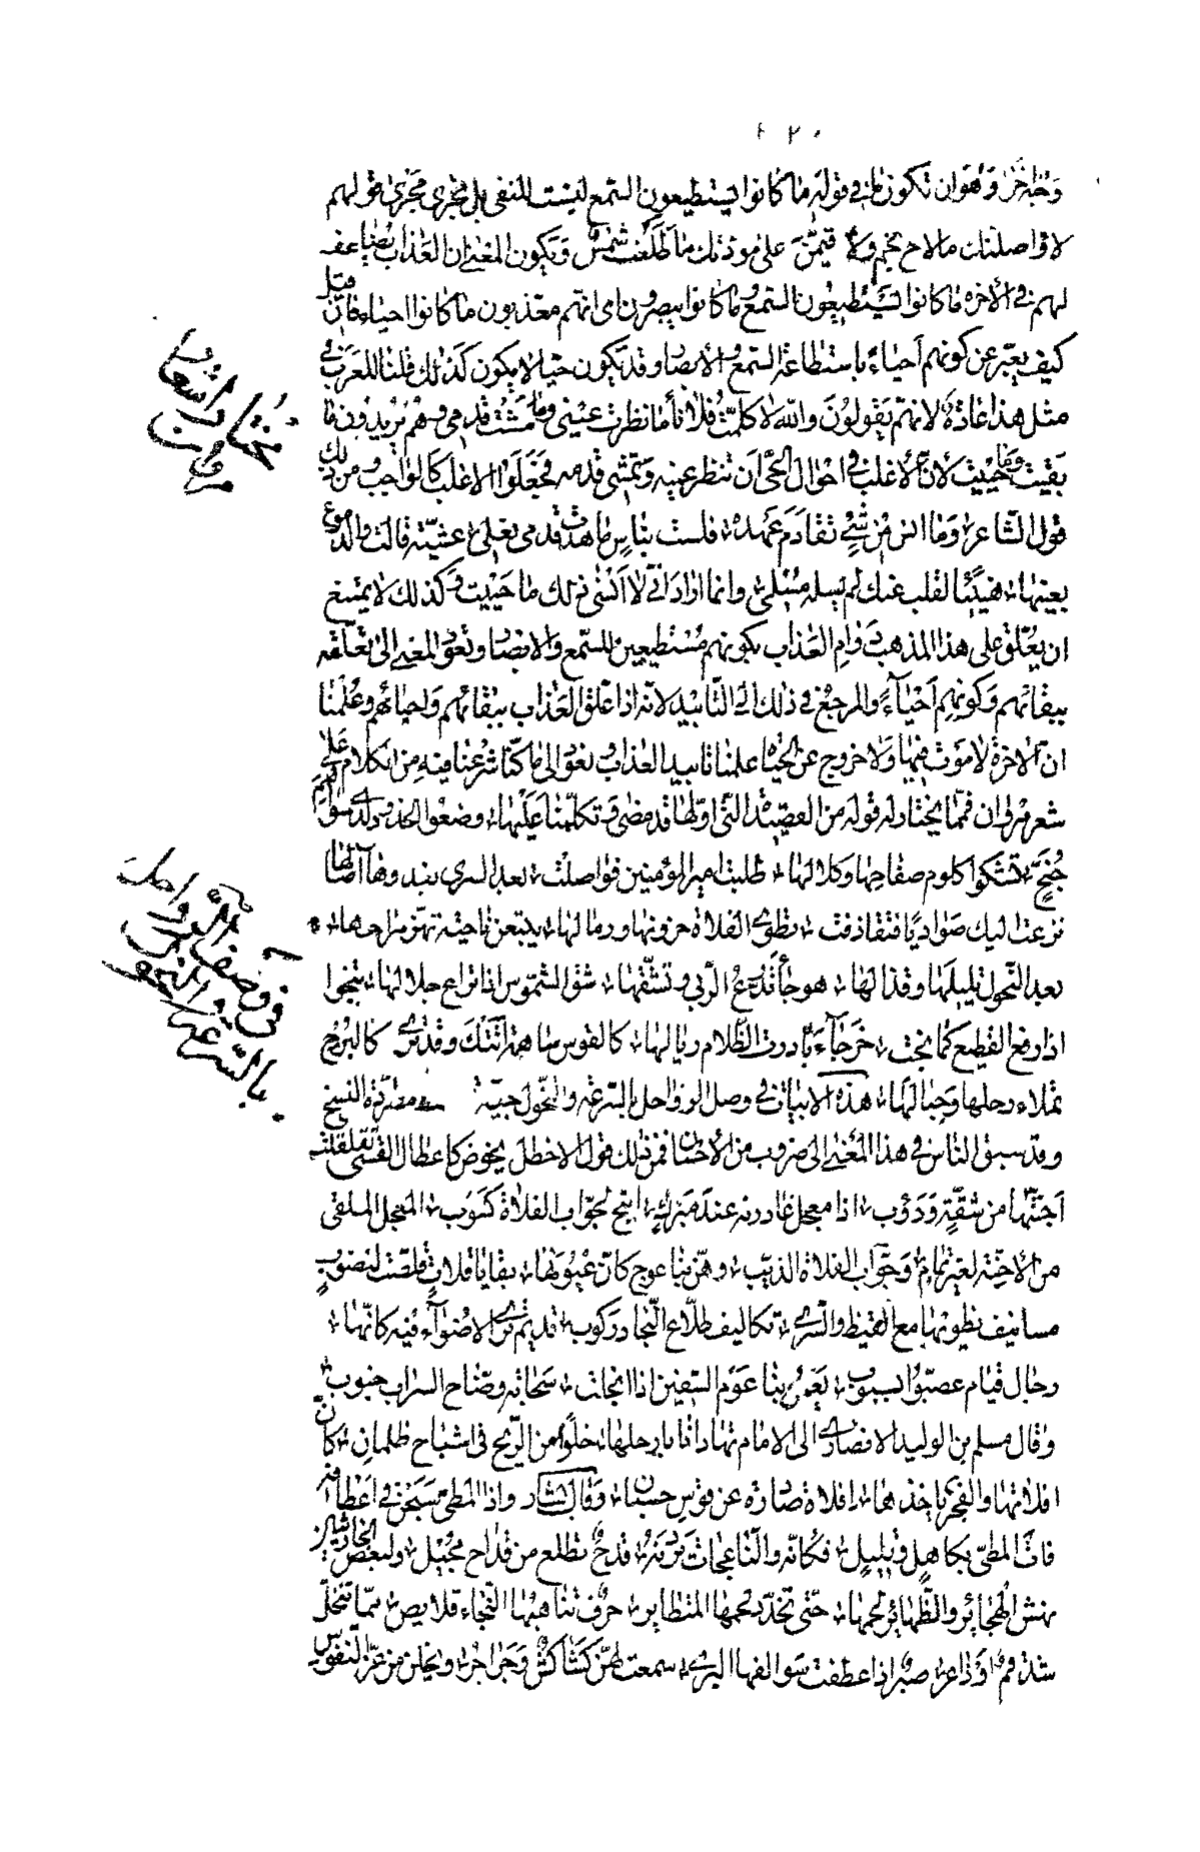 ٤٢٠
وجه آخر وهو ان تكون ما في قوله ما كانوا يستطيعون السمع ليست للنفى بل تجرى مجرى قولهم
لاواصلنك ما لاح نجم ولا قيمن على مودتك ما طلعت شمس ويكون المعنى ان العذاب يضاعف
لهم فى الآخرة ما كانوا يستطيعون السمع وما كانوا يبصرون اى انهم معذبون ما كانوا احياء فان قيل
كيف يعبر عن كونهم أحياء باستطاعة السمع والابصار وقد يكون حيا لا يكون كذلك قلنا للعرب فى
مثل هذا عادة لانهم يقولون والله لا كلمت فلانا ما نظرت عينى وما مشت قدمى وهم يريدون ما
بقيت وما حييت لأن الأغلب فى احوال الحى ان تنظر عينه وتمشى قدمه فجعلوا الاغلب كالواجب ومن ذلك
قول الشاعر وما انس من شئ تقادم عهده فلست بناس ما هدت قدمى نعلى عشية قالت والدموع
بعينها هنيئا لقلب عنك لم يسله مسلى وانما اراد انى لا انسى ذلك ما حييت وكذلك لا يمتنع
ان يعلق على هذا المذهب دوام العذاب بكونهم مستطيعين للسمع والابصار ويعود المعنى الى تعلقه
ببقائهم وكونهم أحياء والمرجع فى ذلك الى التأبيد لانه اذا علق العذاب ببقائهم واحيائهم وعلمنا
ان الآخرة لا موت فيها ولا خروج عن الحياة علمنا تابيد العذاب نعود الى ما كنا شرعنا فيه من الكلام على
شعر مروان فمما يختار له قوله من القصيدة التى اولها قد مضى وتكلمنا عليها وضعوا الخدود لدى سواهم
جنح تشكوا كلوم صفاحها وكلالها طلبت امير المؤمنين فواصلت بعد السرى بغدوها آصالها
نزعت اليك صواديا فتقاذفت تطوى الفلاة حزونها ورمالها يتبعن ناجية تهز مراحها
بعد النحول تليلها وقذالها هوجاء تدرع الربى وتشقها شق الشموس اذا تراع جلالها تنجوا
اذا رفع القطيع كما نجت خرجاء بادرت الظلام ريالها كالقوس ساهمة أتتك وقد ترى كالبرج
تملاء رحلها وجبالها هذه الابيات فى وصف الرواحل بالسرعة والنحول جيدة مطردة النسج
وقد سبق الناس فى هذا المعنى الى ضروب من الأحسان فمن ذلك قول الاخطل بخوص كاعطال القسى تقلقلت
اجنتها من شقة ودؤوب اذا معجل غادرنه عند منزل اتيح لجواب الفلاة كسوب المعجل الملقى
من الأجنة لغير تمام وجواب الفلاة الذيب وهن بنا عوج كان عيونها بقايا قلات قلصت لنضوب
مسانيف يطويها مع القيظ والسرى تكاليف طلاع النجاد ركوب قديم ترى الاضواء فيه كانها
رجال قيام عصبوا بسبوب يعمن بنا عوم السفين اذا انجلت سحابة وضاح السراب جنوب
وقال مسلم بن الوليد الانصارى الى الامام تهادانا بارحلها خلق من الريح فى اشباح ظلمان كأن
افلاتها والفجر ياخذها افلاة صادرة عن قوس حسبان وقال بشار واذا المطى سبحن فى اعطافه
فات المطى بكاهل وتليل فكانه والناعجات يردنه قدح تطلع من قداح مجيل ولبعض
نهش الهجائر والظهائر لحمها حتى تخدد لحمها المتطاير حرف تناهبها النجاء قلايص مما تنخل
شدقم اوداعر صبر اذا عطفت سوالفها البرى سمعت لهن كشاكش وجراجر ونجلن من عز النفوس
مختار اشعار
مروان
فى وصف الرواحل
بالسرعة والنحول